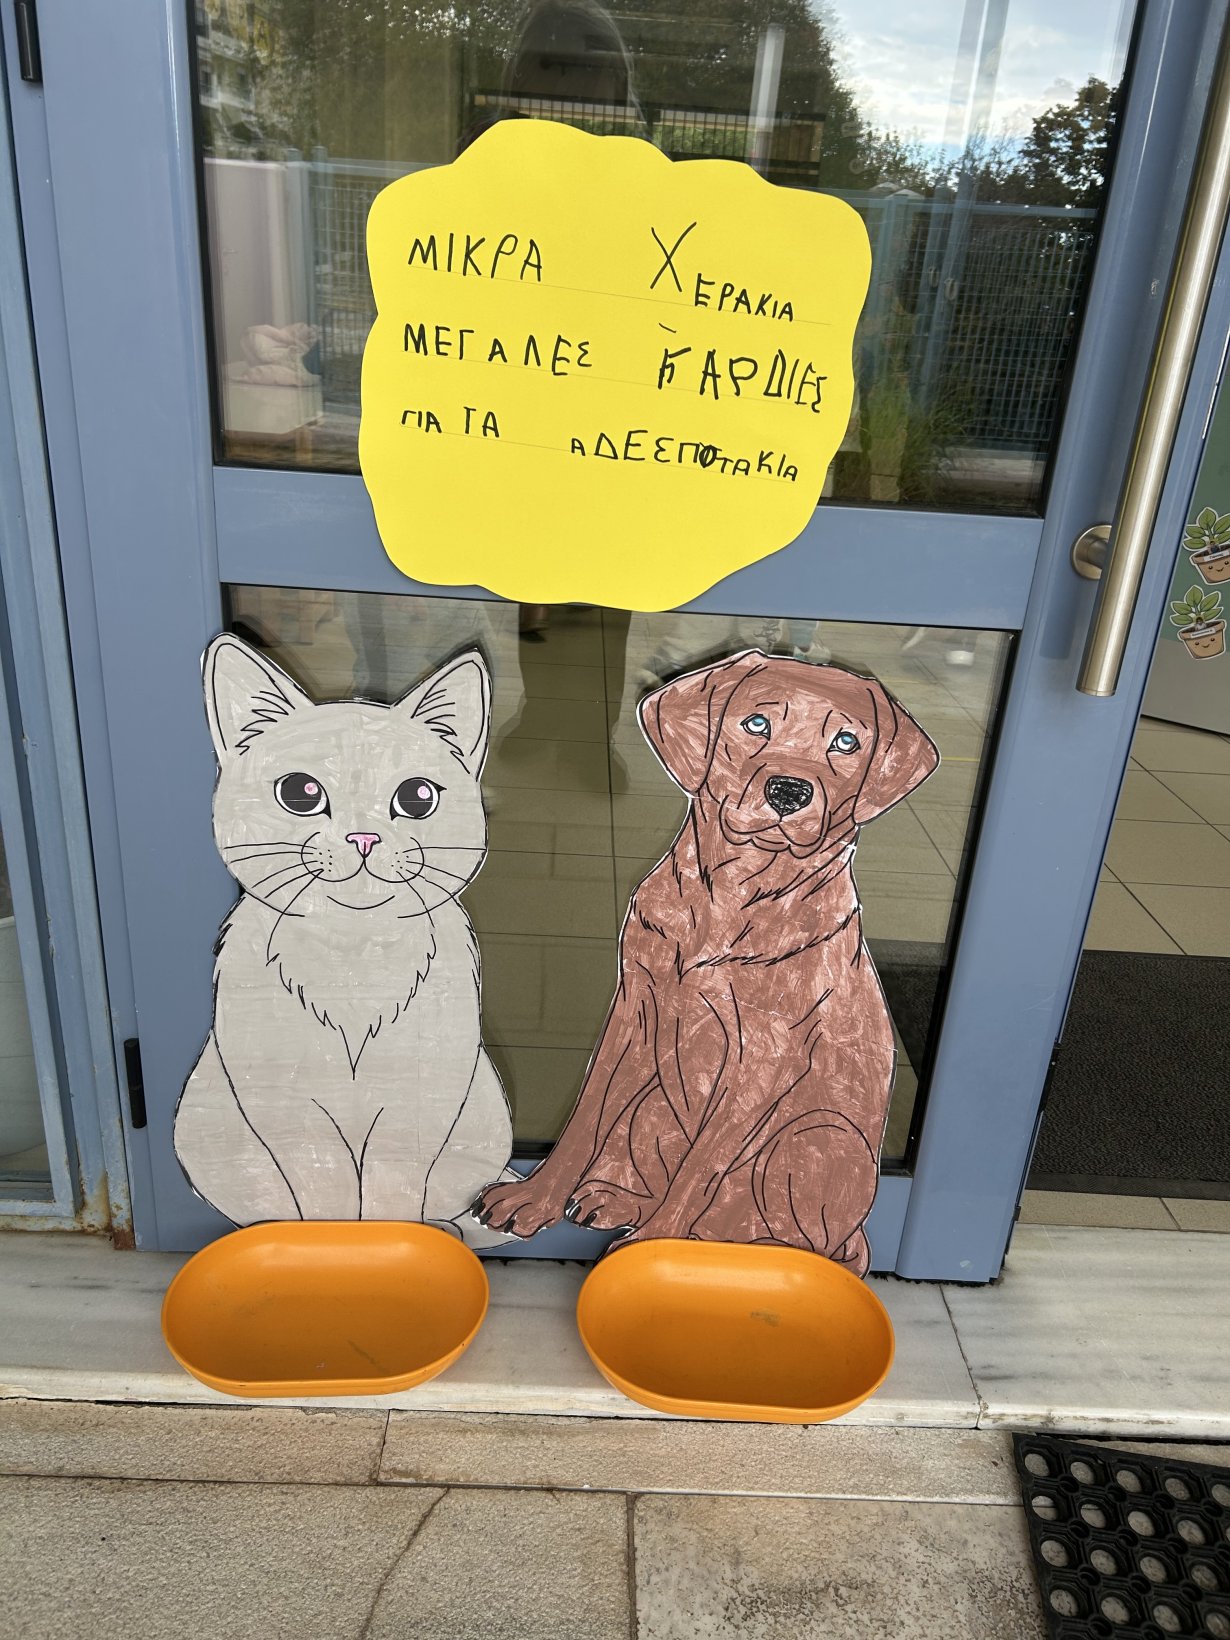 ΜΙΚΡΑ ΧΕΡΑΚΙΑ
ΜΕΓΑΛΕΣ ΚΑΡΔΙΕΣ
ΓΙΑ ΤΑ ΑΔΕΣΠΟΤΑΚΙΑ